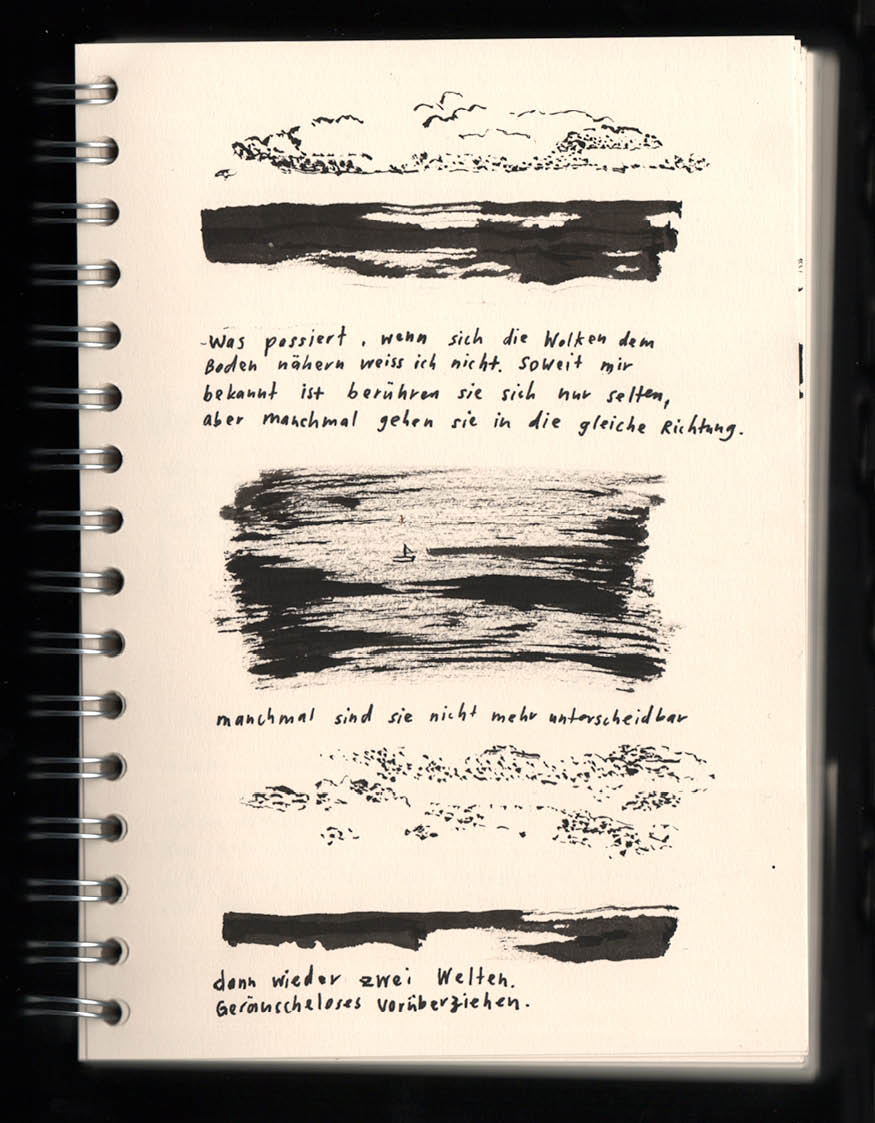 Was passiert, wenn sich die Wolken dem
Boden nähern weiss ich nicht. Soweit mir
bekannt ist berühren sie sich nur selten,
aber manchmal gehen sie in die gleiche Richtung.
manchmal sind sie nicht mehr unterscheidbar
dann wieder zwei Welten.
Geräuscheloses vorüberziehen.